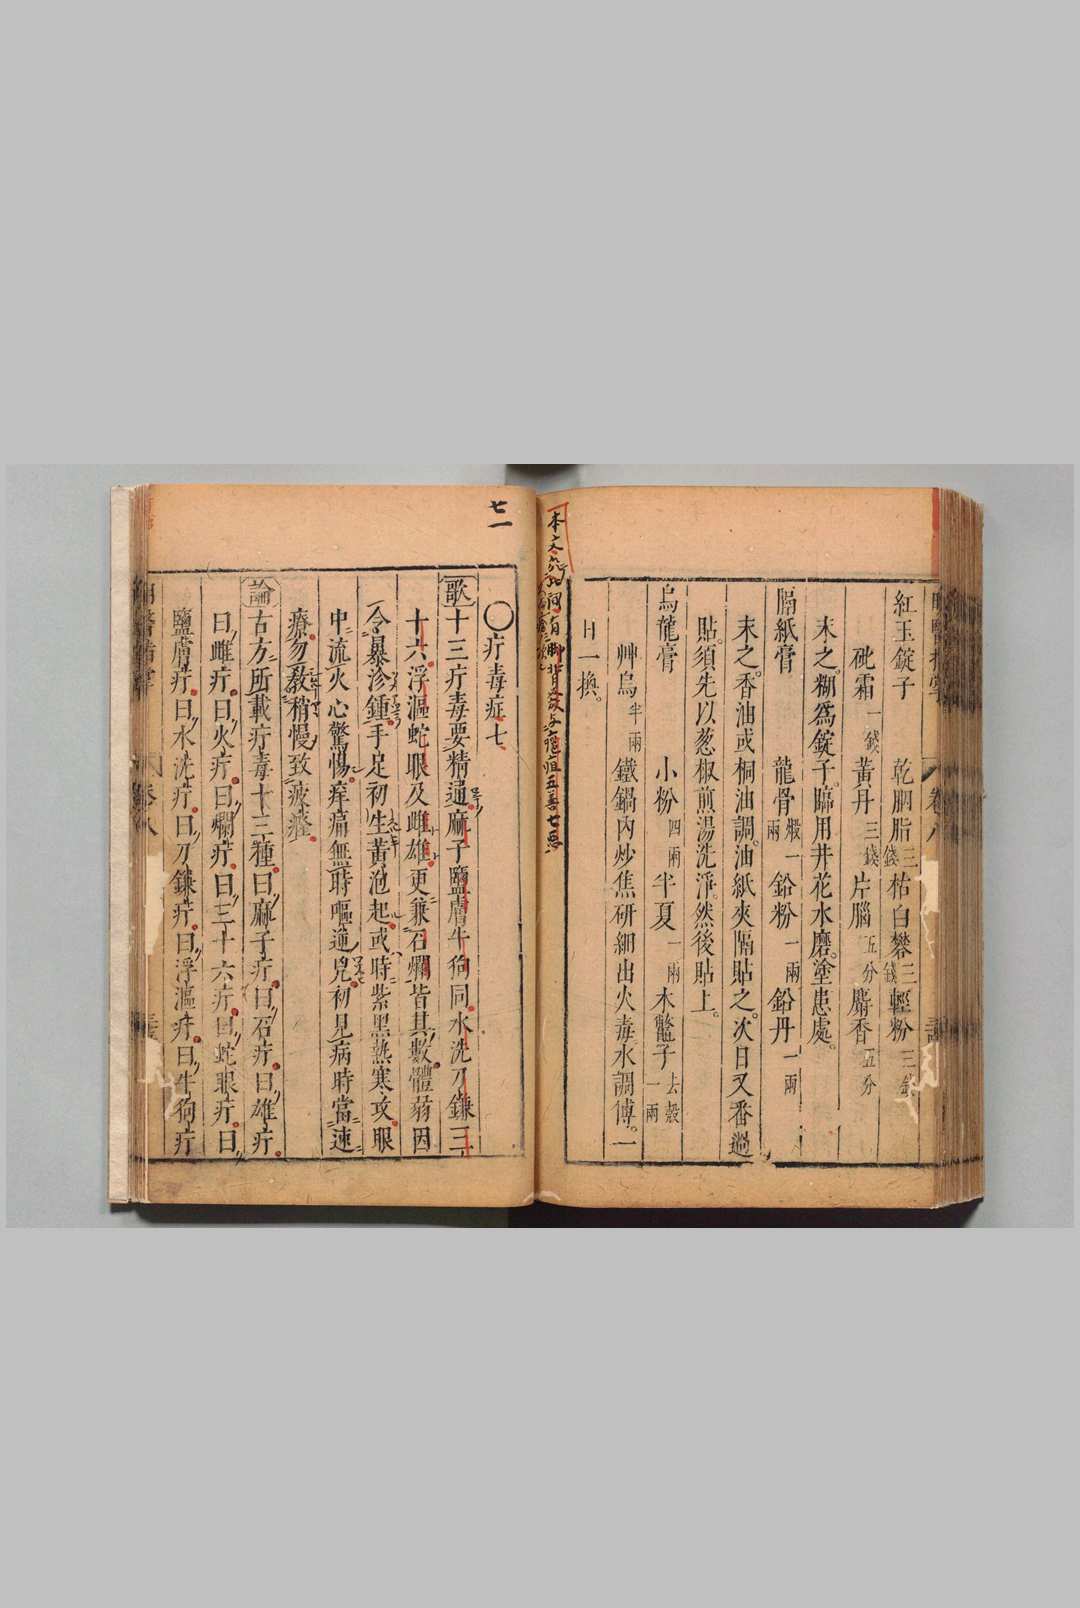 紅玉錠子　乾胭脂三錢　枯白礬三錢　輕粉三錢
砒霜一錢　黃丹三錢　片腦五分　麝香五分
末之。糊為錠子。臨用井花水磨。塗患處。
隔紙膏　龍骨煅一兩　鉛粉一兩　鉛丹一兩
末之。香油或桐油調。油紙夾隔貼之。次日又番過
貼。須先以葱椒煎湯洗淨。然後貼上。
烏龍膏　小粉四兩　半夏一兩　木鼈子去殼一兩
艸烏半兩　鐵鍋內炒焦研細出火毒。水調傅。一
日一換。
七一
〇疔毒症七
歌十三疔毒要精通麻子鹽膚牛狗同水洗刀鎌三
十六浮漚蛇眼及雌雄更兼石爛皆其數體蒻因
含暴沴鍾手足初生黃泡起或時紫黑熱寒攻眼
中流火心驚惕痒痛無時嘔逆兇初見病時當速
療勿教稍慢致疲癃
論古方所載疔毒十三種曰麻子疔曰石疔曰雄疔
曰雌疔曰火疔曰爛疔曰三十六疔曰蛇眼疔曰
鹽膚疔曰水洗疔曰刀鎌疔曰浮漚疔曰牛狗疔